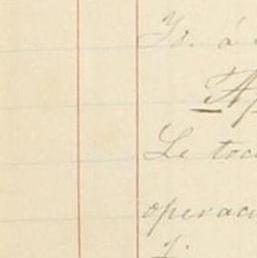 Id. á
Ap
Le toc
operaci